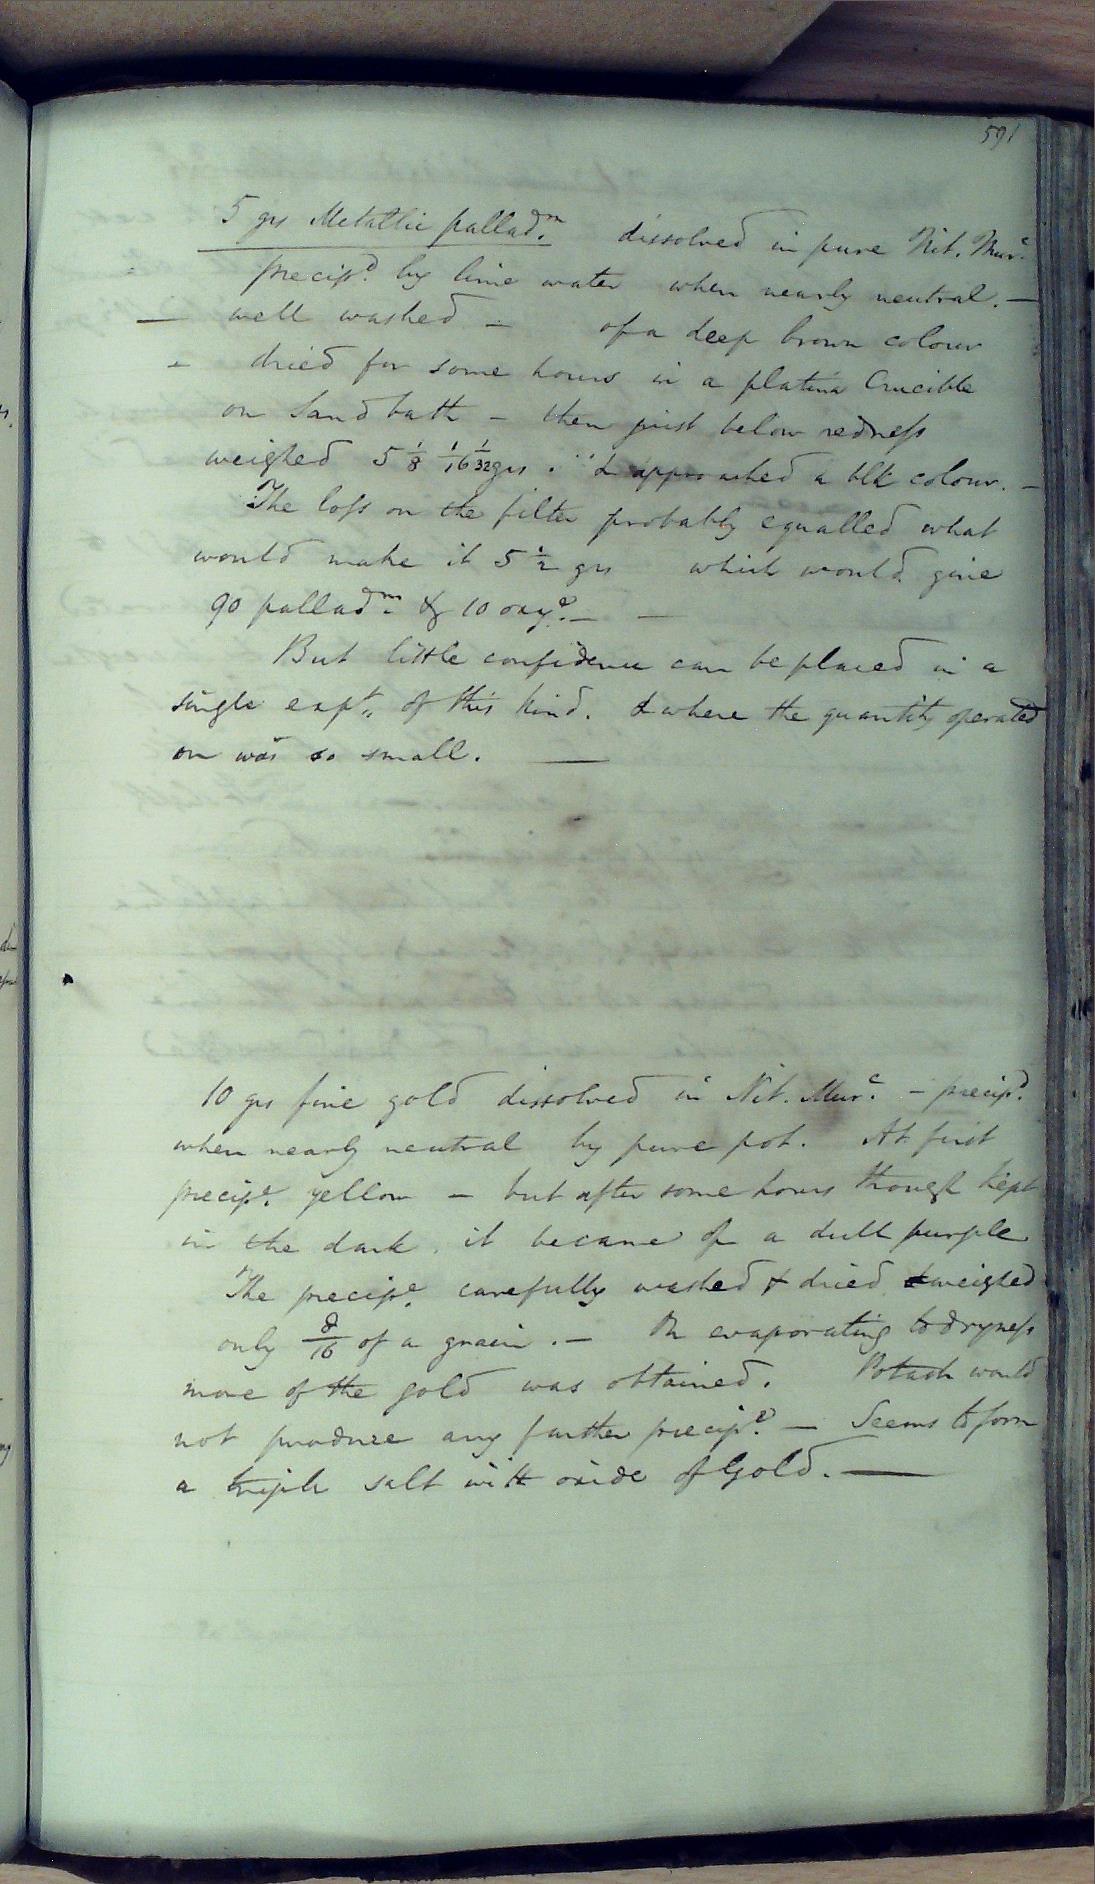 591
5 grs Metallic pallad.m dissolved in pure Nit. Mur.c
precip.d by lime water when nearly neutral. —
— well washed – of a deep brown colour
– dried for some hours in a platina Crucible
on Sand bath – then just below redness
weighed 5 1/8 1/16 1/32 grs. & approached a blk colour. –
The loss on the filter probably equalled what
would make it 5 1/2 grs which would give
90 pallad.m & 10 oxy.e — —
But little confidence can be placed in a
single expt. of this kind. & where the quantity operated
on was so small. —
10 grs fine gold dissolved in Nit. Mur.c – precip.d
when nearly neutral by pure pot. At first
precip.e yellow – but after some hours though kept
in the dark, it became of a dull purple
The precip.e carefully washed & dried weighed
only /16 of a grain. – On evaporating to dryness
more of the gold was obtained. Potash would
not produce any further precip.e — Seems to form
a triple salt with oxide of Gold. —